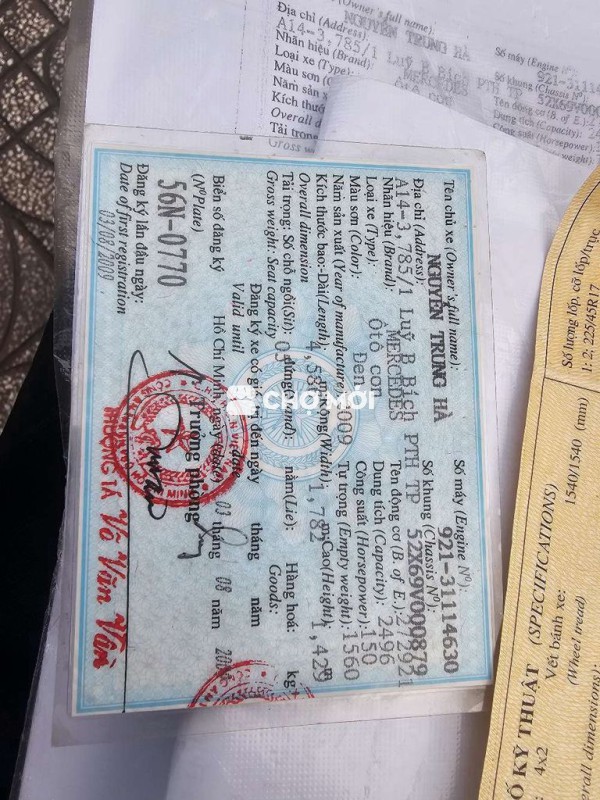 Tên chủ xe (Owner's full name):
NGUYỄN TRUNG HÀ
Địa chỉ (Address):
A14-3,785/1 Luỹ B Bích PTH TP
Nhãn hiệu (Brand): MERCEDES
Loại xe (Type): Ôtô con
Màu sơn (Color): Đen
Năm sản xuất (Year of manufacture): 2009
Kích thước bao: Dài(Length):
Overall dimension
Rộng(Width): 1,782 m; Cao(Height): 1,429 m
Tải trọng: Số chỗ ngồi(Sit): 05 đứng(Stand): nằm(Lie): Hàng hoá: kg
Gross weight: Seat capacity Goods:
Số máy (Engine Nº):
921-31114630
Số khung (Chassis Nº):
52X69V000879
Tên động cơ (B. of E.): 272921
Dung tích (Capacity): 2496
Công suất (Horsepower): 150
Tự trọng (Empty weight): 1560
Biển số đăng ký
(NºPlate)
56N-0770
Đăng ký lần đầu ngày:
Date of first registration
03/08/2009
Đăng ký xe có giá trị đến ngày tháng năm
Valid until
Hồ Chí Minh, ngày 03 tháng 08 năm
Trưởng phòng
THƯỢNG TÁ Võ Văn Vân
CHỢ MỚI
Owner's full name):
NGUYỄN TRUNG HÀ
Địa chỉ (Address):
A14-3,785/1 Luỹ B Bích PTH TP
Nhãn hiệu (Brand): MERCEDES
Loại xe (Type): Ôtô con
Màu sơn (Color):
Năm sản
Kích thước
Overall d
Tải trọng
Gross w
Số máy (Engine
921-3111
Số khung (Chassis Nº
52X69V000
Tên động cơ (B. of E.)
Dung tích (Capacity) 24
Công suất (Horsepower):
weight):
SỐ KỸ THUẬT (SPECIFICATIONS)
4x2
Vết bánh xe: 1540/1540 (mm)
(Wheel tread)
Overall dimensions):
Số lượng lốp, cỡ lốp/trục
1: 2; 225/45R17